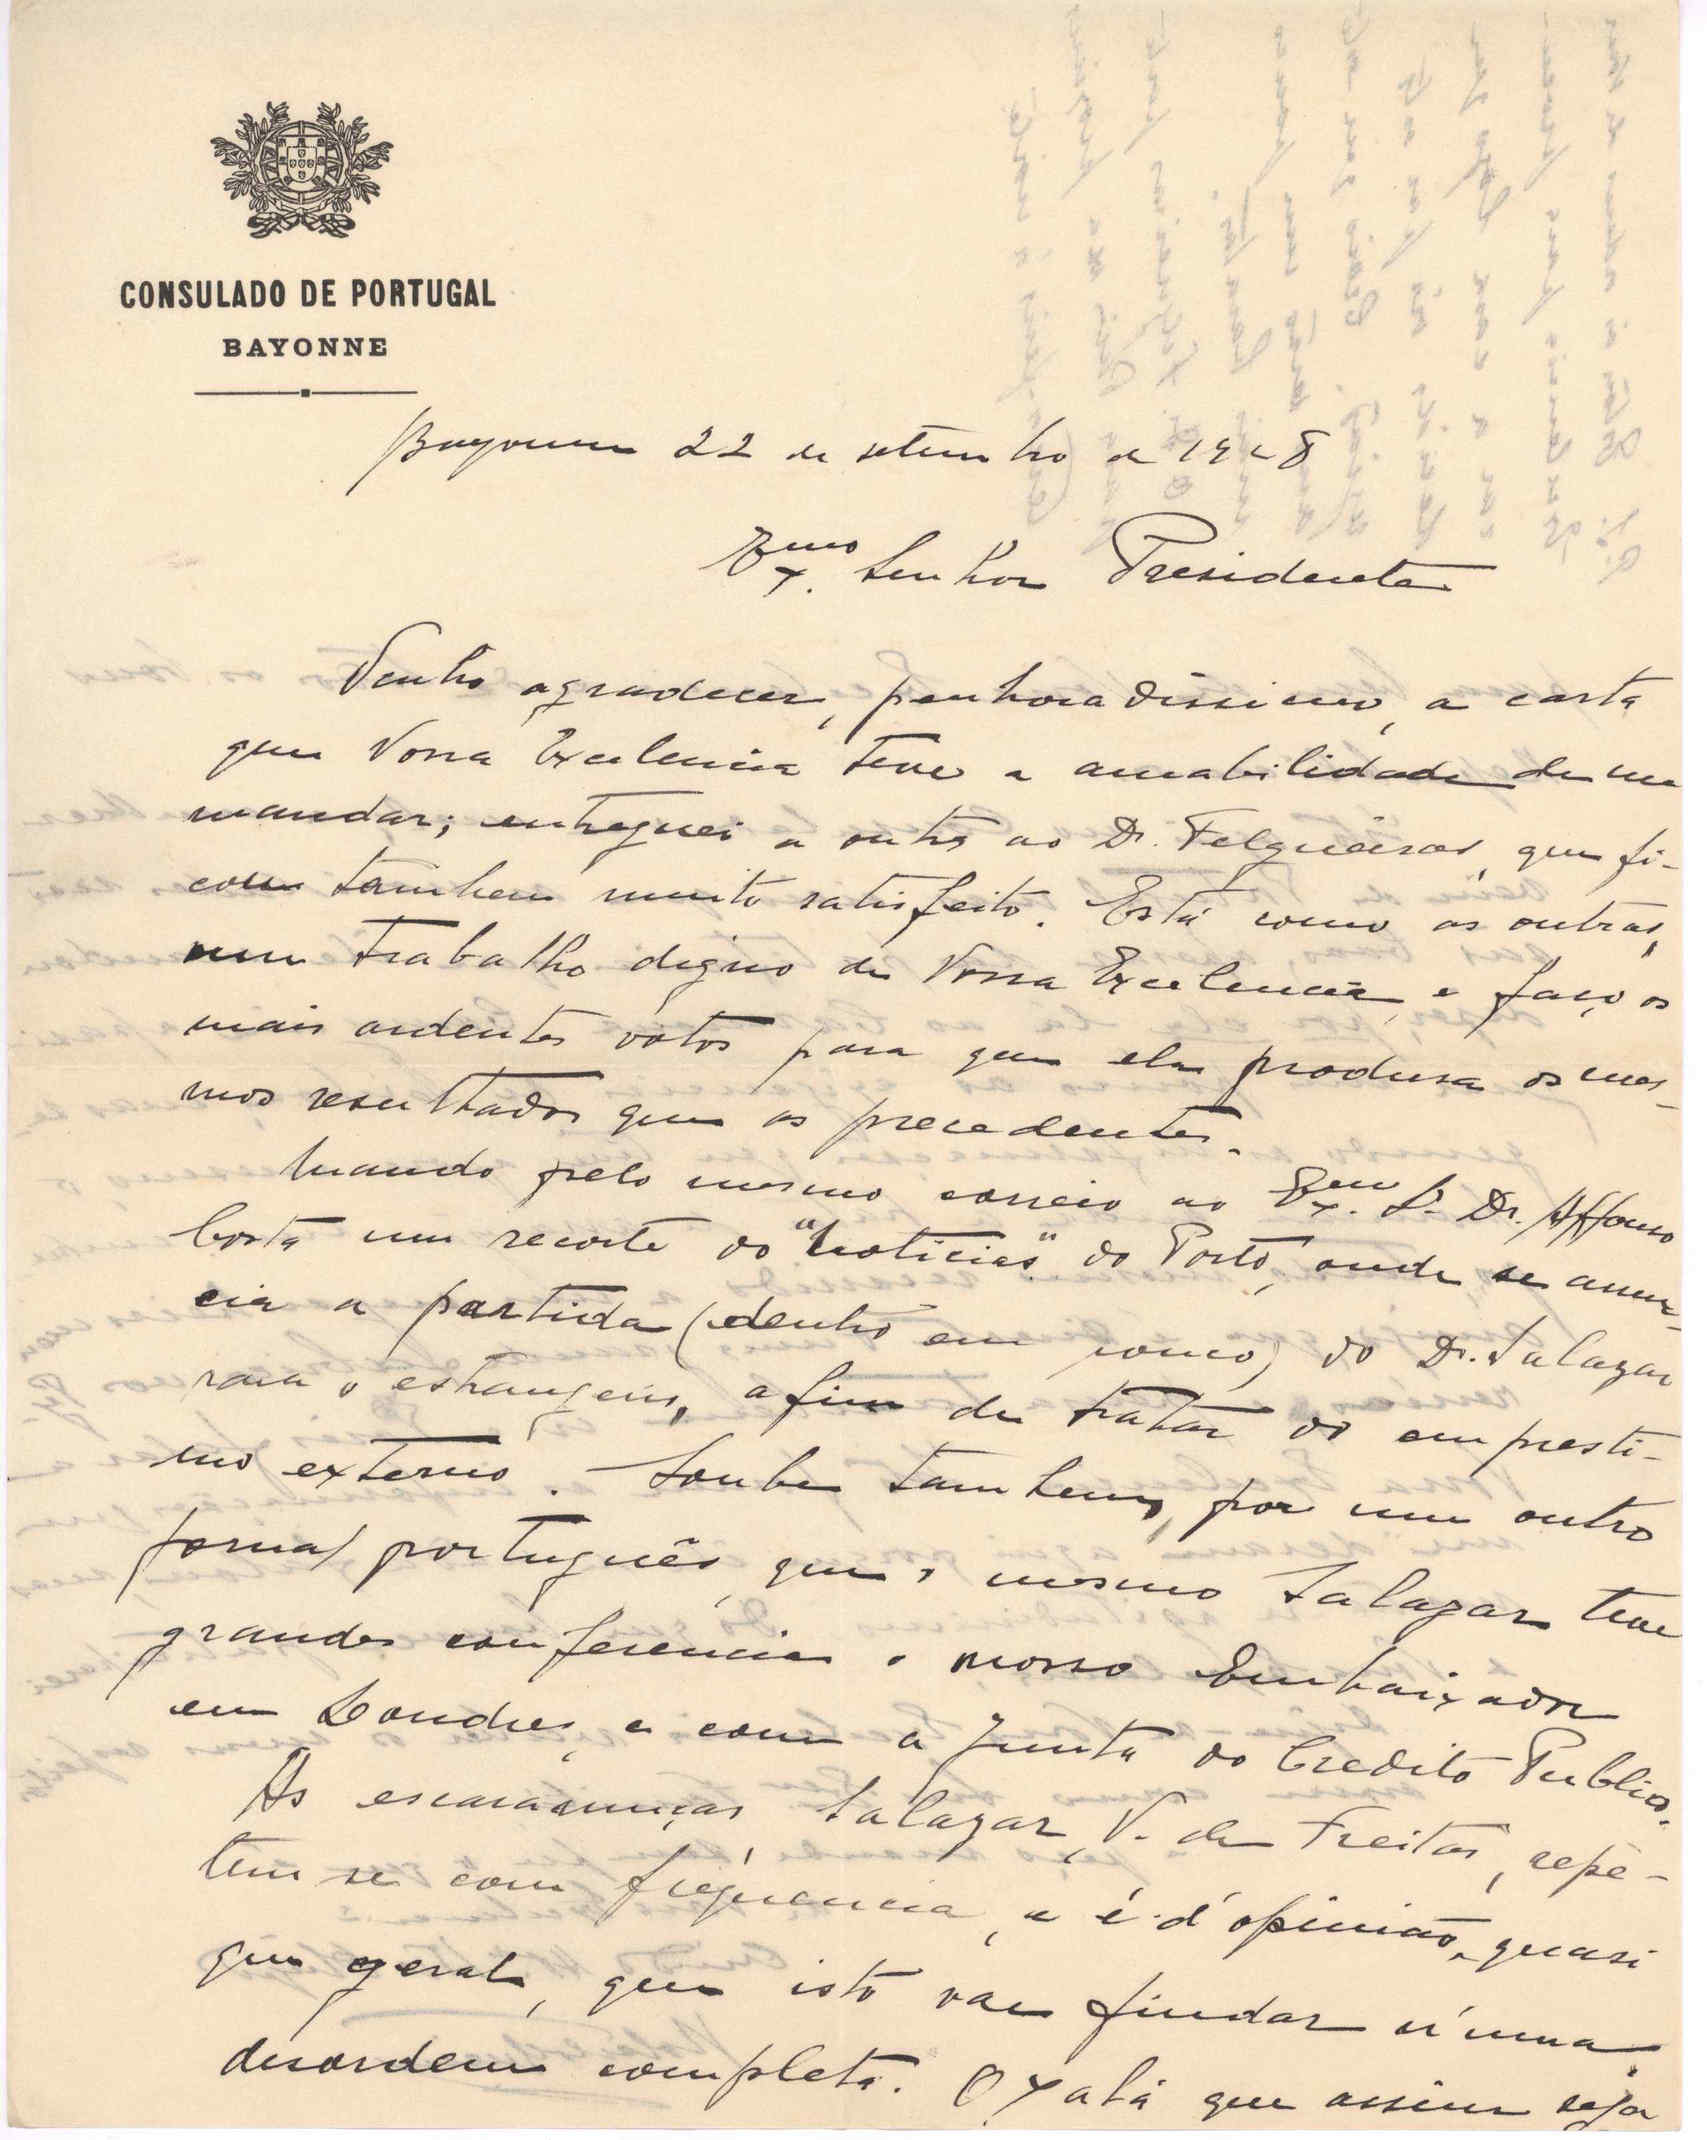 CONSULADO DE PORTUGAL
BAYONNE
Bayonne 22 de setembro de 1928
Exmo. Senhor Presidente
Venho agradecer, penhoradissimo, a carta
que Vossa Excelencia teve a amabilidade de me
mandar; entreguei a outra ao Dr. Felgueiras, que fi-
cou tambem muito satisfeito. Está como as outras,
um trabalho digno de Vossa Excelencia, e faço os
mais ardentes votos para que ela produsa os mes-
mos resultados que as precedentes.
Mando pelo mesmo correio ao Exmo. Sr. Dr. Affonso
Costa um recorte do "Noticias" do Porto, onde se anun-
cia a partida (dentro em pouco) do Dr. Salazar
para o estrangeiro, afim de tratar do empresti-
mo externo. Soube tambem, por um outro
jornal português, que o mesmo Salazar teve
grandes conferencias o nosso Embaixador
em Londres, e com a Junta do Credito Publico.
As escaramuças, Salazar, V. de Freitas, repé-
tem se com frequencia, e é d'opinião, quasi
que geral, que isto vae findar n'uma
desordem completa. Oxalá que assim seja